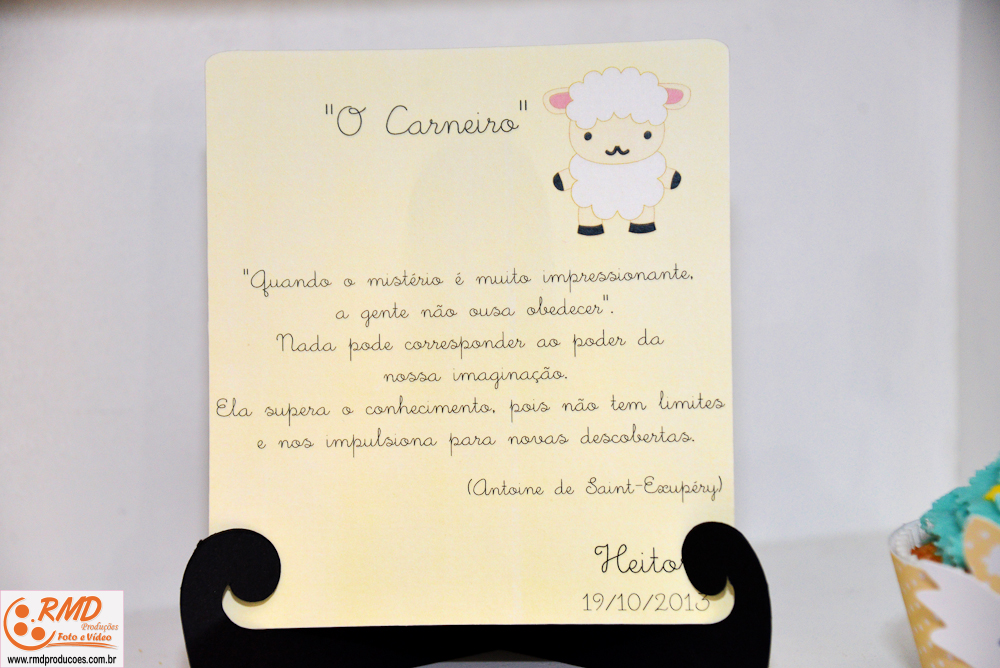 "O Carneiro"
"Quando o mistério é muito impressionante,
a gente não ousa obedecer".
Nada pode corresponder ao poder da
nossa imaginação.
Ela supera o conhecimento, pois não tem limites
e nos impulsiona para novas descobertas.
(Antoine de Saint-Exupéry)
Heitor
19/10/2013
RMD
Produções
Foto e Vídeo
www.rmdproducoes.com.br